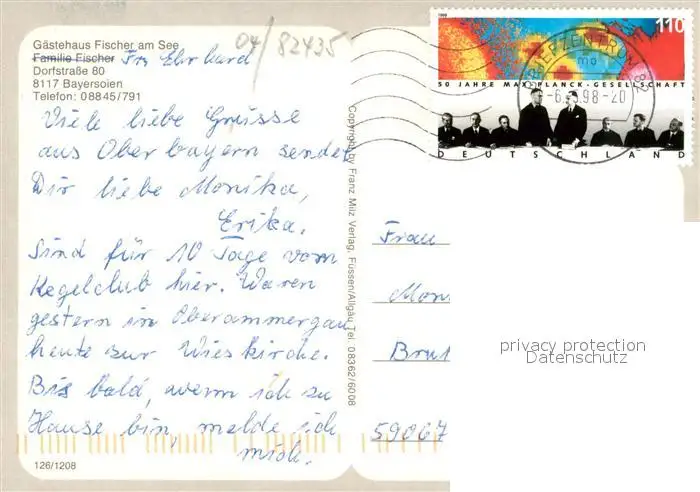 Gästehaus Fischer am See
Familie Fischer Frz Ehrhard
Dorfstraße 80
8117 Bayersoien
Telefon: 08845/791
04/82435
Viele liebe Grüsse
aus Oberbayern sendet
Dir liebe Monika,
Erika.
Sind für 10 Tage vom
Kegelclub hier. Waren
gestern in Oberammergau
heute zur Wieskirche.
Bis bald, wenn ich zu
Hause bin, melde ich
mich.
126/1208
Copyright by Franz Milz Verlag, Füssen/Allgäu Tel. 08362/6008
1998
110
50 JAHRE MAX-PLANCK-GESELLSCHAFT
DEUTSCHLAND
BRIEFZENTRUM 82
mb
98-20
Frau
Mon
Bru
59067
privacy protection
Datenschutz